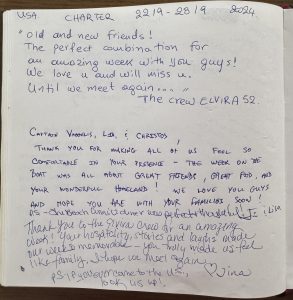 USA CHARTER 22/9 - 28/9 2024
"Old and new friends!
The perfect combination for
an amazing week with you guys!
We love u and will miss u.
Until we meet again..."
The crew ELVIRA 52.
CAPTAIN & CHRISTOS,
THANK YOU FOR MAKING ALL OF US FEEL SO
COMFORTABLE IN YOUR PRESENCE - THE WEEK ON THE
BOAT WAS ALL ABOUT GREAT FRIENDS, GREAT FOOD, AND
YOUR WONDERFUL HOMELAND! WE LOVE YOU GUYS
AND HOPE YOU ARE WITH YOUR FAMILIES SOON!
PS - dinner was
Thank you to the Elvira crew for an amazing
week! Your hospitality, stories and laughs made
our week so memorable - you truly made us feel
like family. I hope we meet again.
PS if you ever come to the US, ♡ Tina
look us up!